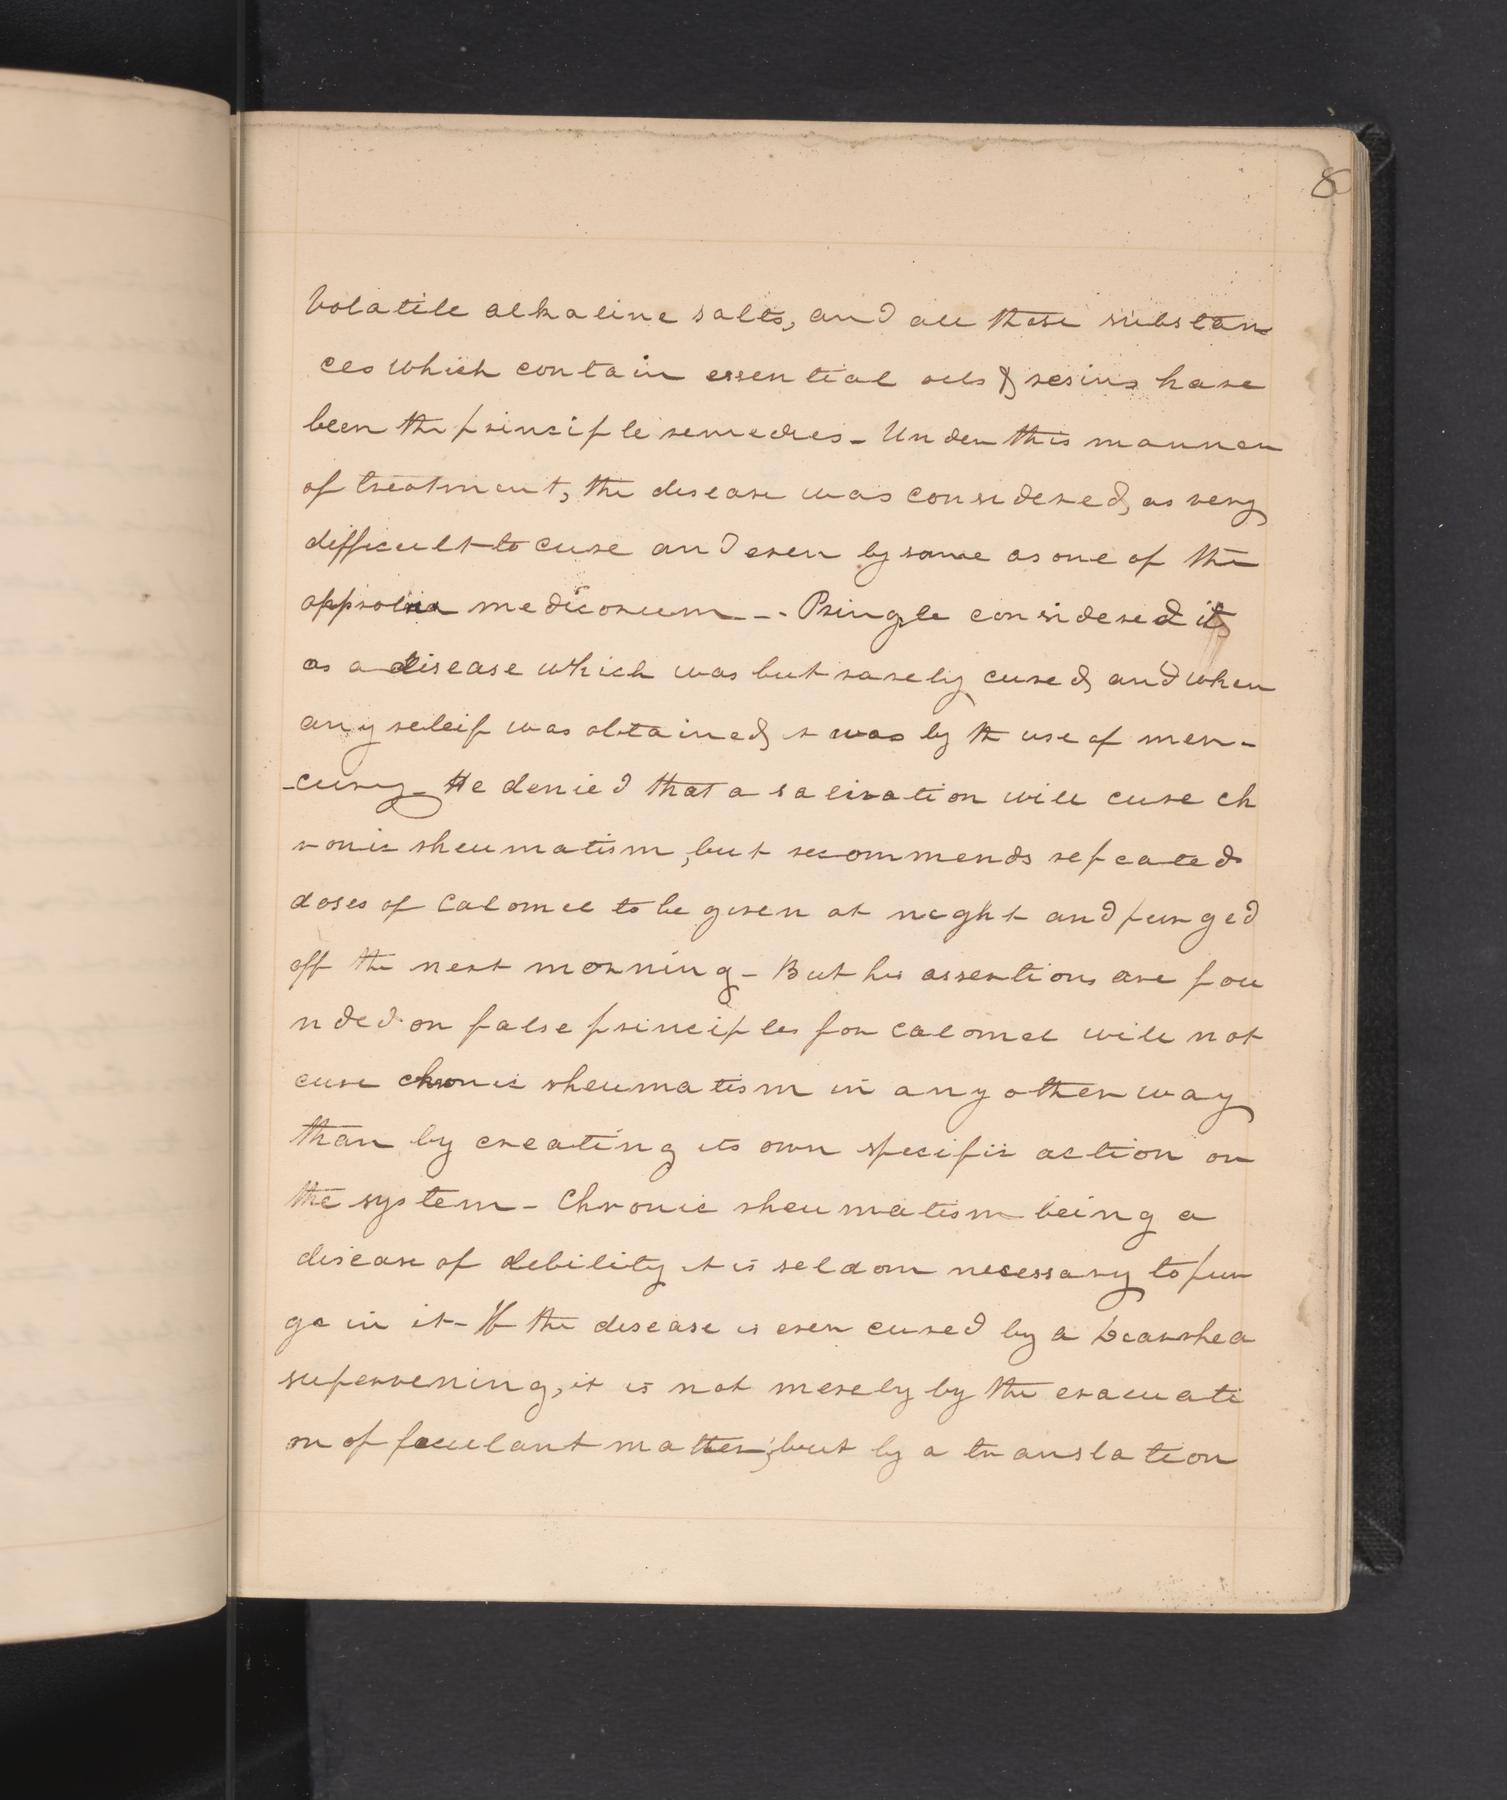 8
Volatile alkaline salts, and all those substan
ces which contain essential oils & resins have
been the principle remedies - Under this manner
of treatment, the disease was considered, as very
difficult to cure and even by some as one of the
opprobria medicorum - - Pringle considered it
as a disease which was but rarely cured, and when
any releif was obtained, it was by the use of mer-
-cury - He denied that a salivation will cure ch
ronic rheumatism, but recommends repeated
doses of Calomel to be given at night and purged
off the next morning - But his assertions are fou
nded on false principles for calomel will not
cure chronic rheumatism in any other way
than by creating its own specific action on
the system - Chronic rheumatism being a
disease of debility it is seldom necessary to pur
ge in it - If the disease is ever cured by a Diarrhea
supervening, it is not merely by the evacuati
on of feculant matter, but by a translation